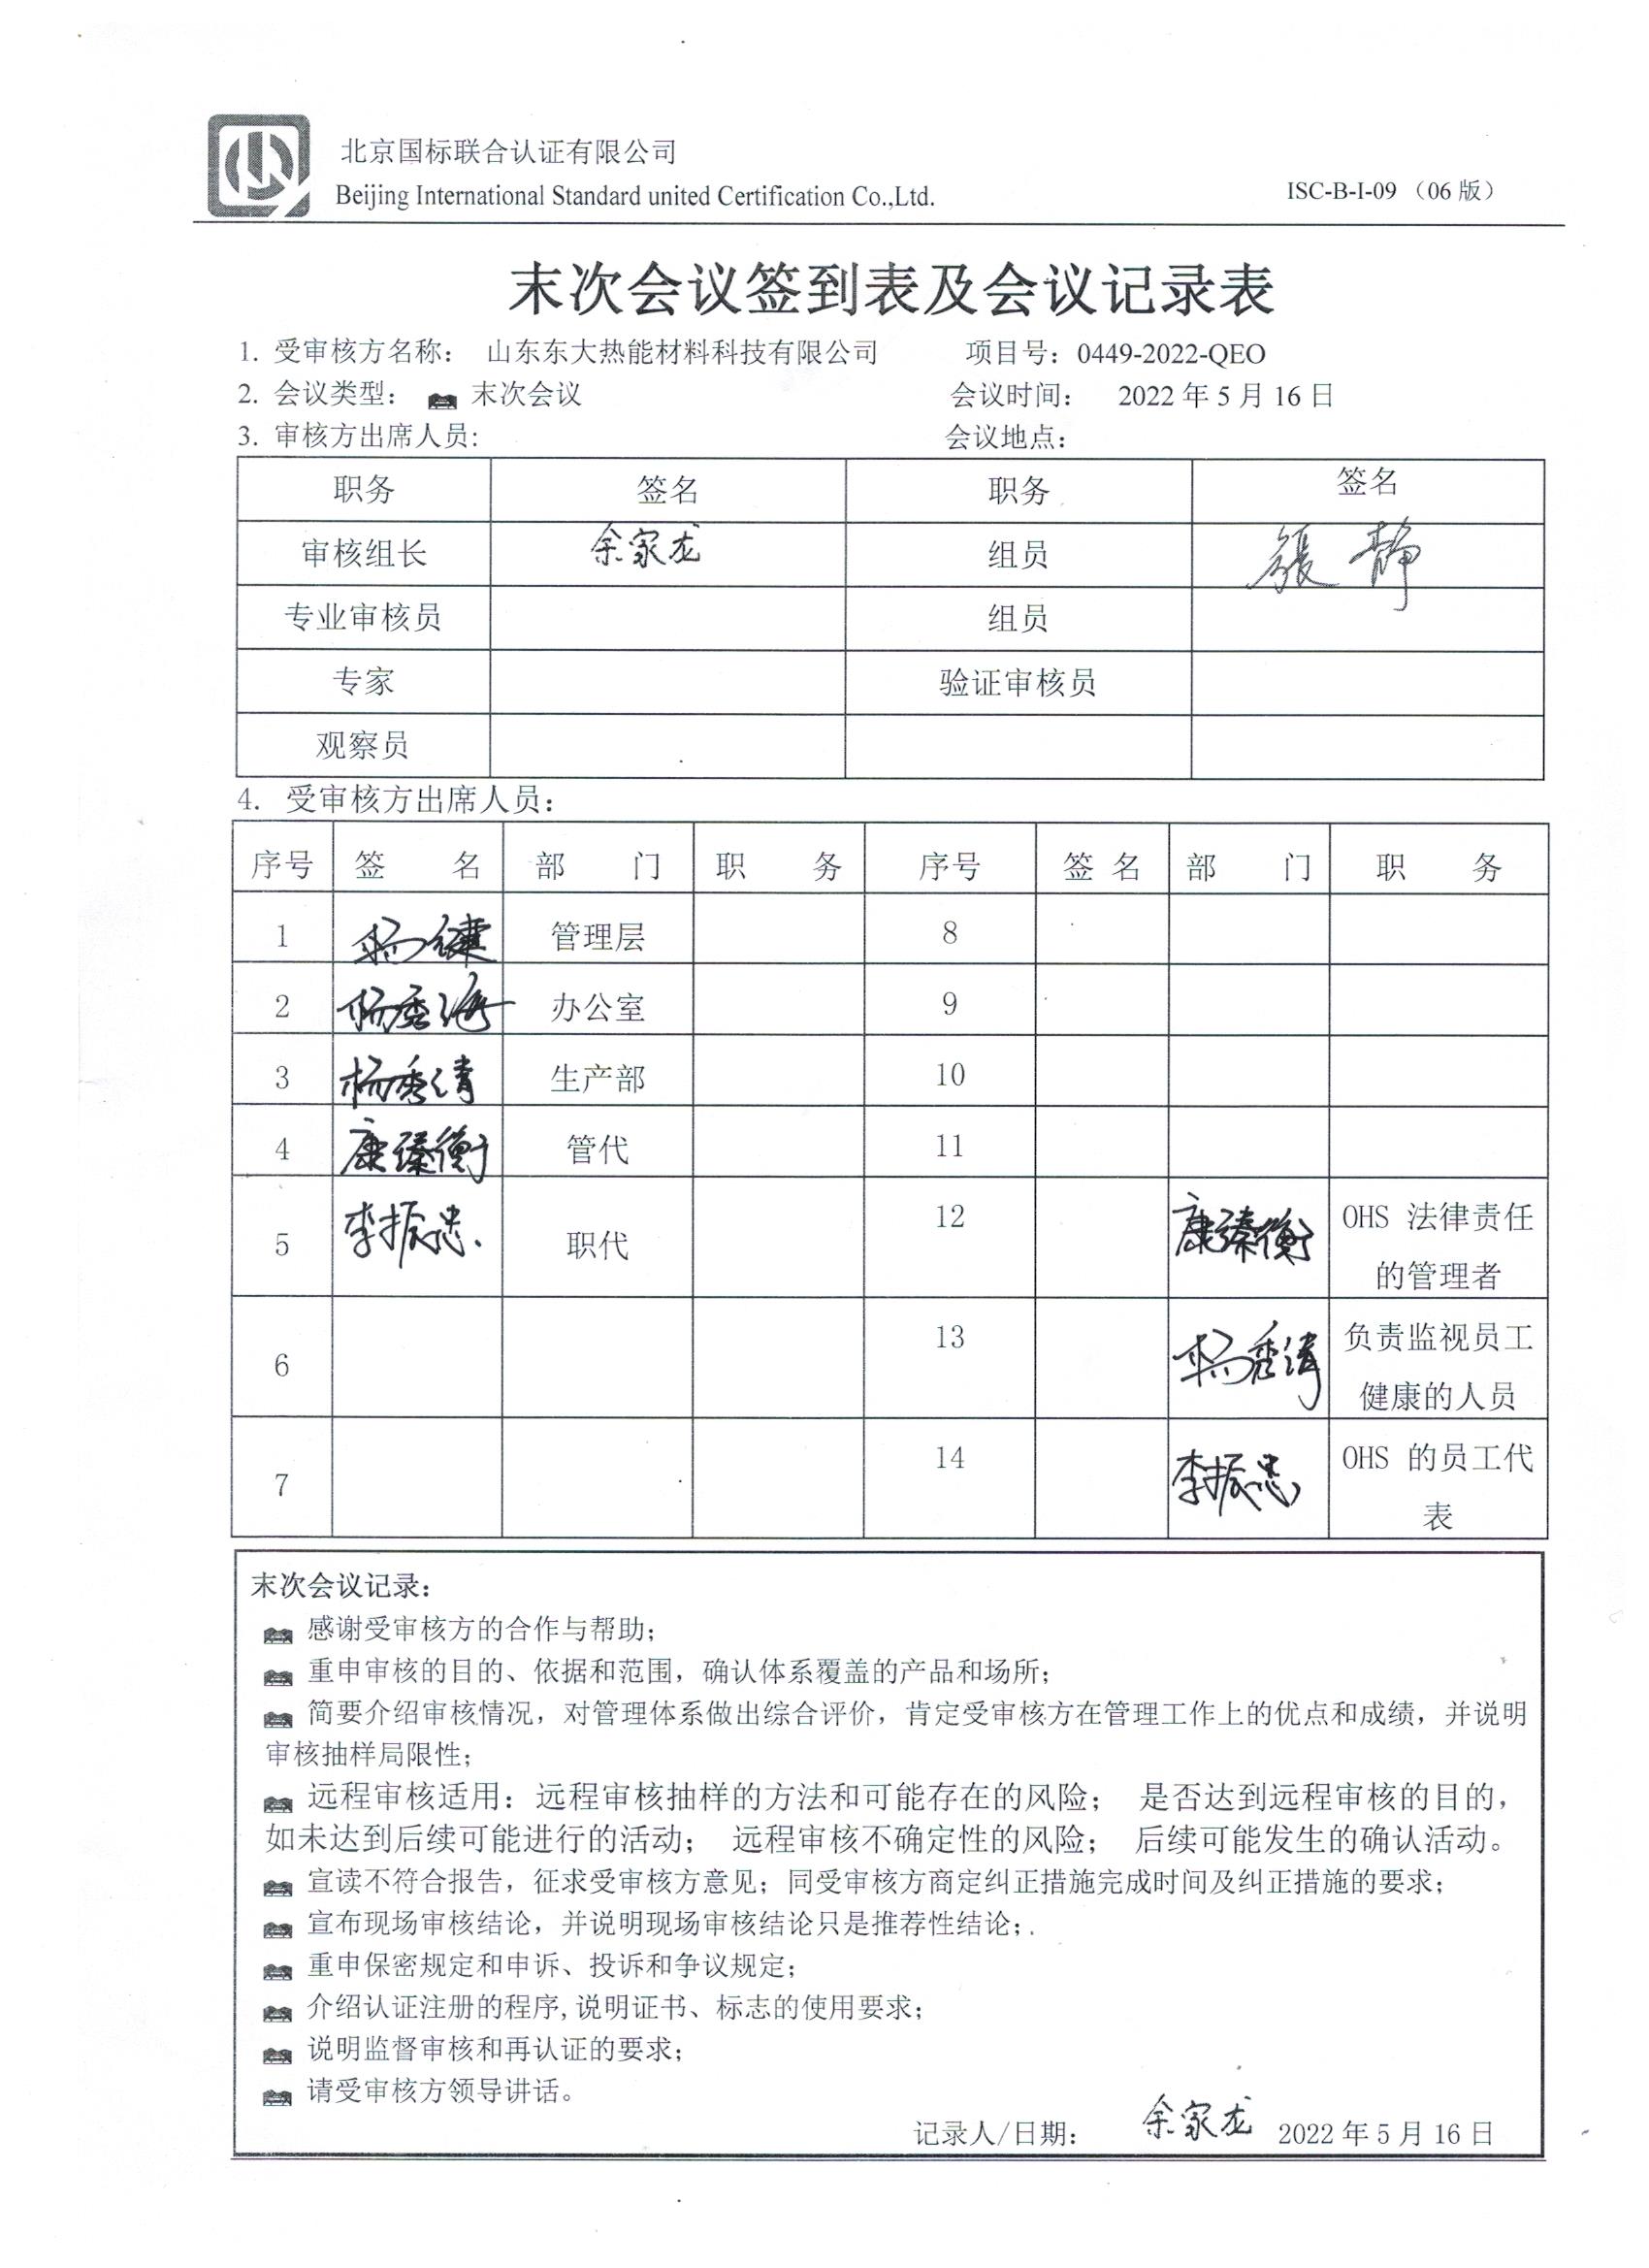 北京国标联合认证有限公司
Beijing International Standard united Certification Co.,Ltd.
ISC-B-I-09 （06 版）
末次会议签到表及会议记录表
1. 受审核方名称： 山东东大热能材料科技有限公司 项目号：0449-2022-QEO
2. 会议类型： 末次会议 会议时间： 2022 年 5 月 16 日
3. 审核方出席人员: 会议地点：
职务 签名 职务 签名
审核组长 余家龙 组员 張静
专业审核员 组员
专家 验证审核员
观察员
4. 受审核方出席人员：
序号 签 名 部 门 职 务 序号 签 名 部 门 职 务
1 杨健 管理层 8
2 杨秀海 办公室 9
3 杨秀清 生产部 10
4 康臻衡 管代 11
5 李振忠 职代 12 康臻衡 OHS 法律责任
的管理者
6 13 杨秀清 负责监视员工
健康的人员
7 14 李振忠 OHS 的员工代
表
末次会议记录：
感谢受审核方的合作与帮助；
重申审核的目的、依据和范围，确认体系覆盖的产品和场所；
简要介绍审核情况，对管理体系做出综合评价，肯定受审核方在管理工作上的优点和成绩，并说明
审核抽样局限性；
远程审核适用：远程审核抽样的方法和可能存在的风险； 是否达到远程审核的目的，
如未达到后续可能进行的活动； 远程审核不确定性的风险； 后续可能发生的确认活动。
宣读不符合报告，征求受审核方意见；同受审核方商定纠正措施完成时间及纠正措施的要求；
宣布现场审核结论，并说明现场审核结论只是推荐性结论；.
重申保密规定和申诉、投诉和争议规定；
介绍认证注册的程序,说明证书、标志的使用要求；
说明监督审核和再认证的要求；
请受审核方领导讲话。
记录人/日期： 余家龙 2022 年 5 月 16 日